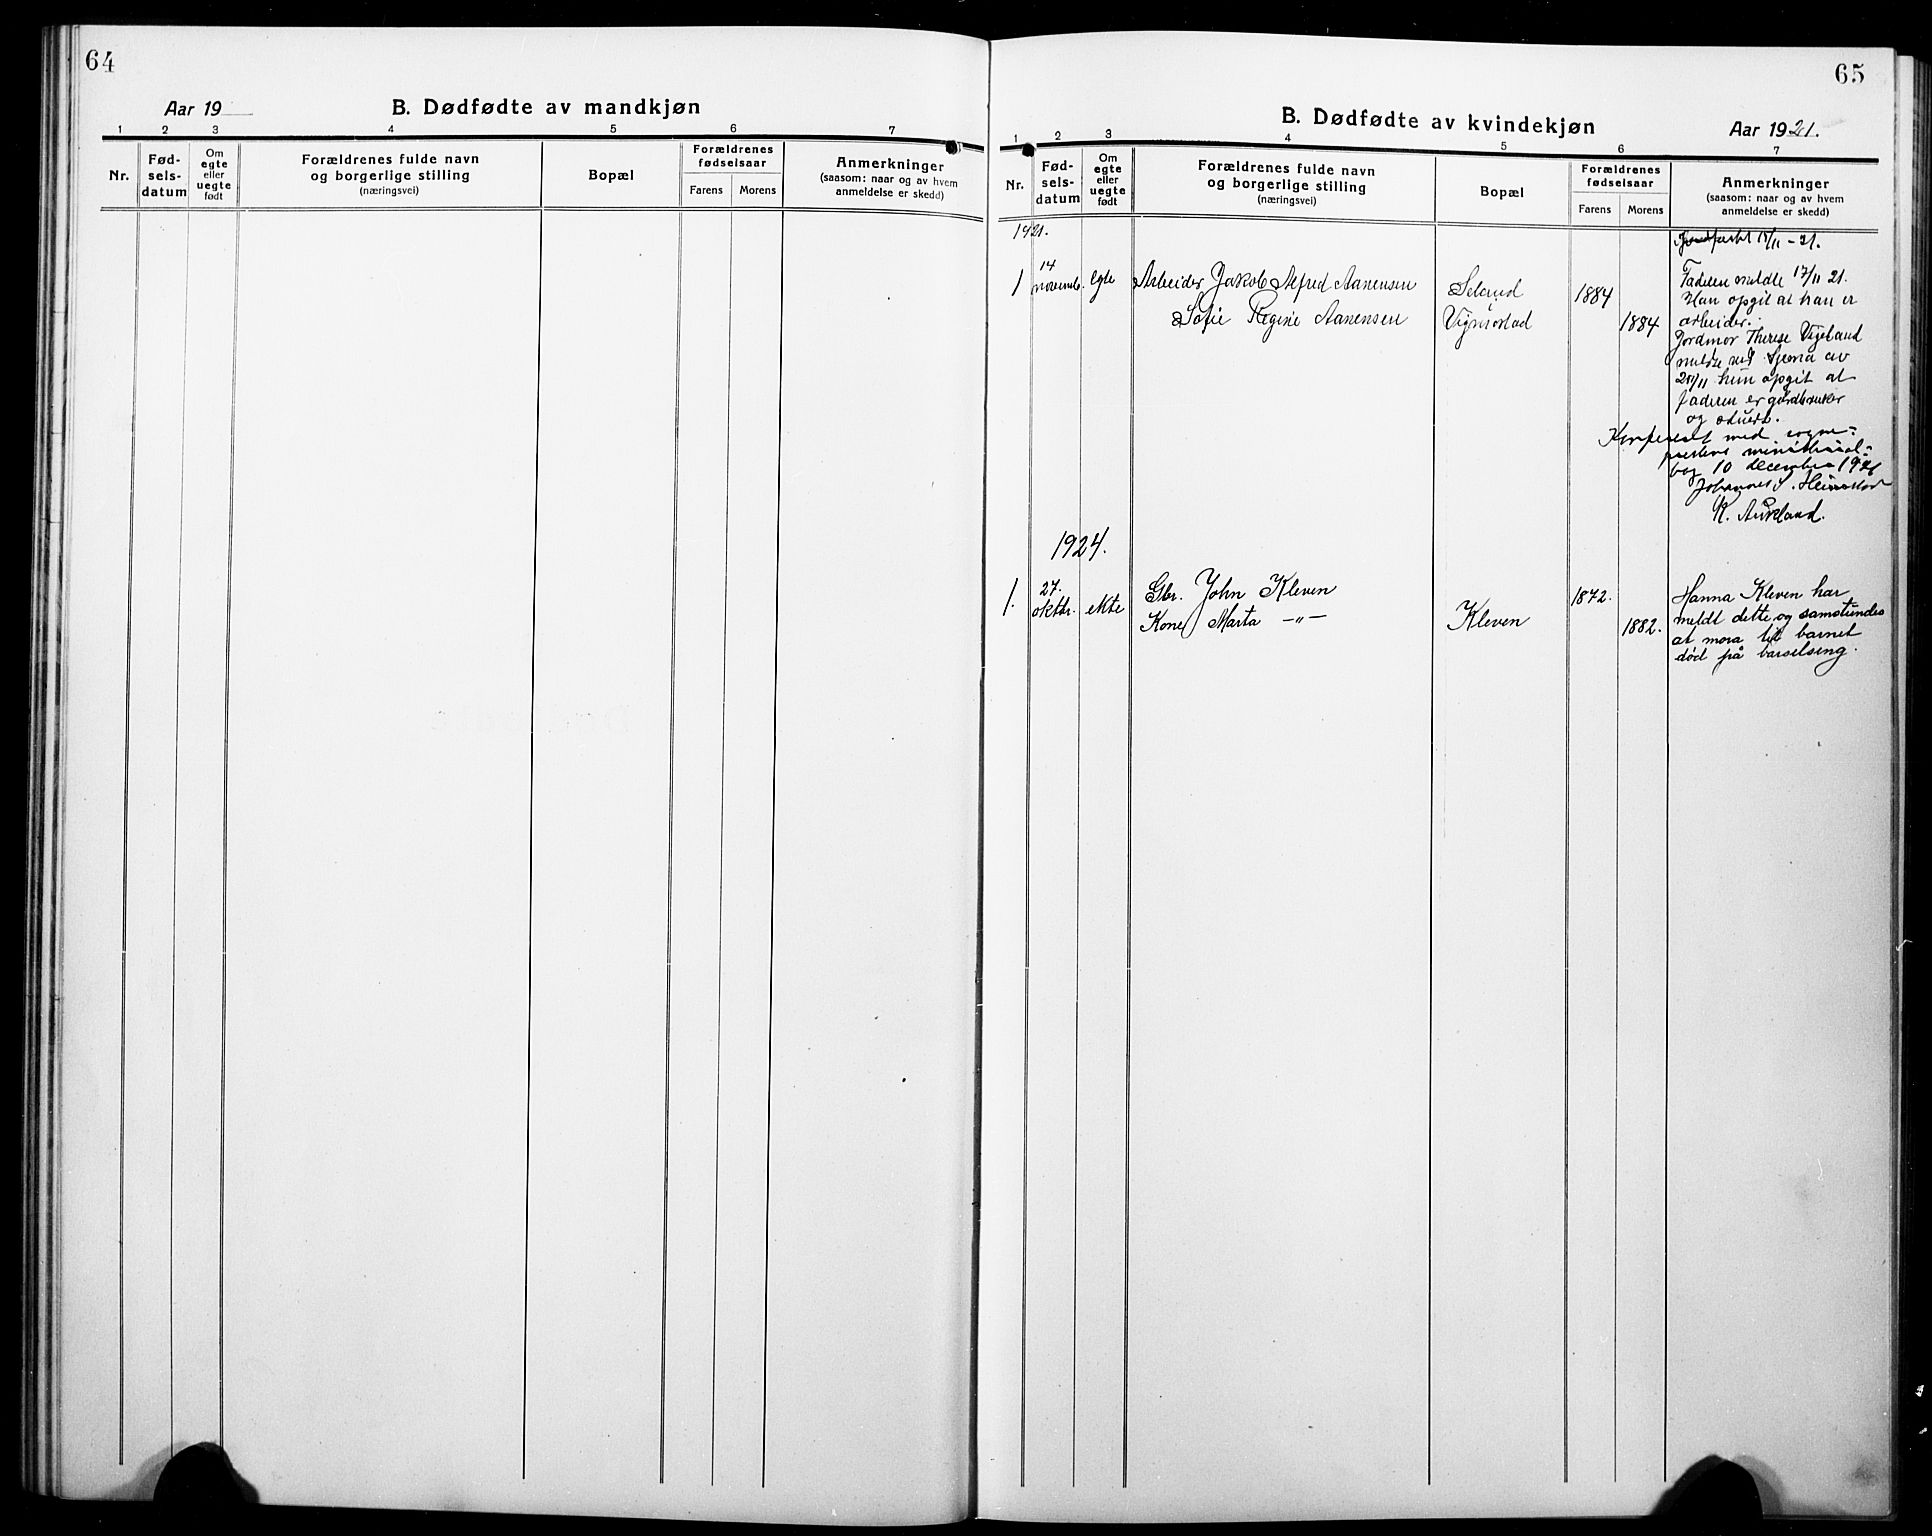 64
Aar 19
B. Dødfødte av mandkjøn
1 2 3 4 5 6 7
Nr.
Fød-
sels-
datum
Om
egte
eller
uegte
født
Forældrenes fulde navn
og borgerlige stilling
(næringsvei)
Bopæl
Forældrenes
fødselsaar
Farens Morens
Anmerkninger
(saasom: naar og av hvem
anmeldelse er skedd)
65
B. Dødfødte av kvindekjøn
Aar 1921.
1 2 3 4 5 6 7
Nr.
Fød-
sels-
datum
Om
egte
eller
uegte
født
Forældrenes fulde navn
og borgerlige stilling
(næringsvei)
Bopæl
Forældrenes
fødselsaar
Farens Morens
Anmerkninger
(saasom: naar og av hvem
anmeldelse er skedd)
1921.
1 14 novemb. egte Arbeider Jakob Alfred Aanensen
Sofie Regine Aanensen
Seland
Vigmostad
1884
1884
Jordfæstet 18/11 - 21.
Faderen meldte 17/11 21.
Han opgit at han er
arbeider.
Jordmor Therese Vigeland
meldte ved Skema av
hun opgit at
faderen er gårdbruker
og
Konferert med sogne-
prestens ministerial-
bog 10 december 1921
K. Aukland.
1924.
1. 27. oktbr. ekte Gbr. John Kleven
Kone Marta —〃—
Kleven
1872.
1882.
Hanna Kleven har
meldt dette og samstundes
at mora til barnet
død på barselseng.